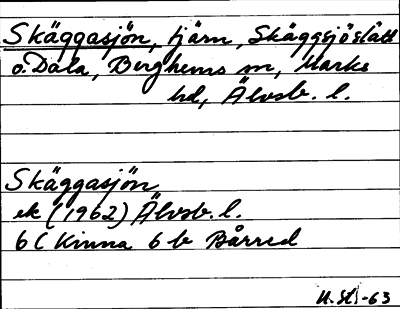 Skäggasjön, tjärn, Skäggsjöslätt
o. Dala, Berghems sn, Marks
hd, Älvsb. l.
Skäggasjön
ek (1962) Älvsb. l.
6 C Kinna 6 b Bårred
U. St. -63